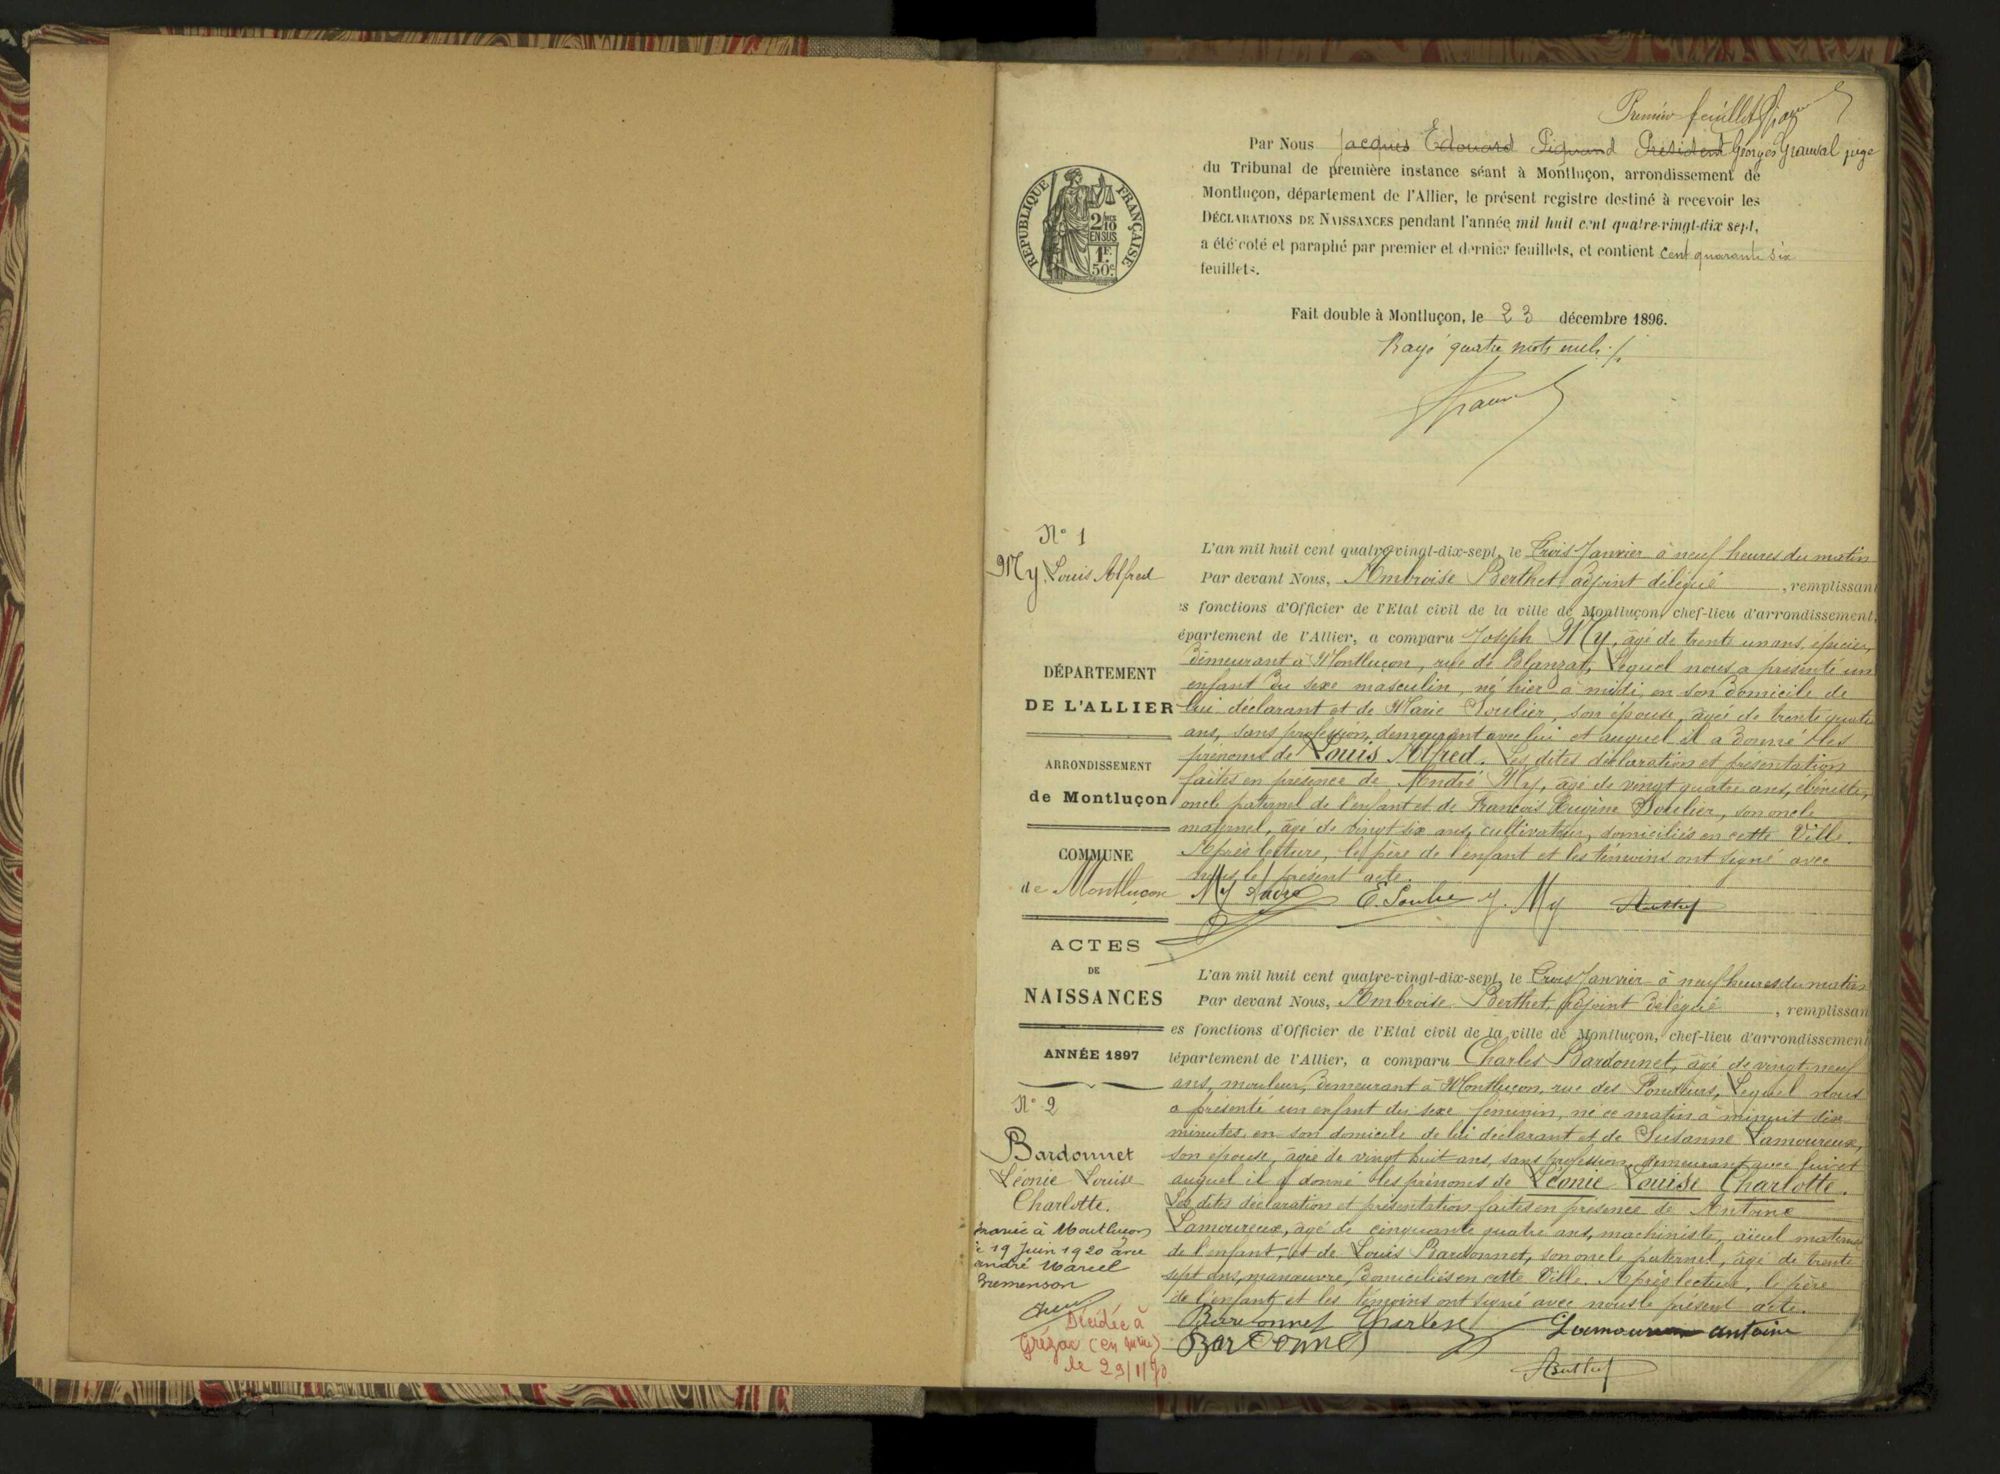 Premier feuillet
Par Nous Jacques Edouard Pignand Président Georges Grauval juge
du Tribunal de première instance séant à Montluçon, arrondissement de
Montluçon, département de l'Allier, le présent registre destiné à recevoir les
DÉCLARATIONS DE NAISSANCES pendant l'année mil huit cent quatre-vingt-dix sept,
a été coté et paraphé par premier et dernier feuillets, et contient cent quarante six
feuillets.
RÉPUBLIQUE FRANÇAISE
2/10
EN SUS
1F.
50c
Fait double à Montluçon, le 23 décembre 1896.
Rayé quatre mots nuls
N° 1
My, Louis Alfred
L'an mil huit cent quatre-vingt-dix-sept, le Trois Janvier à neuf heures du matin
Par devant Nous, Ambroise Berthet, adjoint délégué, remplissant
es fonctions d'Officier de l'Etat civil de la ville de Montluçon, chef-lieu d'arrondissement,
épartement de l'Allier, a comparu Joseph My, âgé de trente un ans, épicier,
demeurant à Montluçon, rue de Blanzat, Lequel nous a présenté un
enfant du sexe masculin, né hier à midi, en son domicile de
lui déclarant et de Marie Soulier, son épouse, âgée de trente quatre
ans, sans profession, demeurant avec lui et auquel il a donné les
prénoms de Louis Alfred. Les dites déclaration et présentation
faites en présence de André My, âgé de vingt quatre ans, ébéniste,
oncle paternel de l'enfant et de François Eugène Soulier, son oncle
maternel, âgé de vingt six ans, cultivateur, domiciliés en cette Ville.
Après lecture, le père de l'enfant et les témoins ont signé avec
nous le présent acte.
My E. Soulie J. My
DÉPARTEMENT
DE L'ALLIER
ARRONDISSEMENT
de Montluçon
COMMUNE
de Montluçon
ACTES
DE
NAISSANCES
ANNÉE 1897
N° 2
Bardonnet
Léonie Louise
Charlotte.
mariée à Montluçon
le 19 Juin 1920 avec
andré Marcel
Décédée à
Grézac (en mairie)
le 29/1/70
L'an mil huit cent quatre-vingt-dix-sept, le Trois Janvier à neuf heures du matin
Par devant Nous, Ambroise Berthet, Adjoint délégué, remplissan
es fonctions d'Officier de l'Etat civil de la ville de Montluçon, chef-lieu d'arrondissement
département de l'Allier, a comparu Charles Bardonnet, âgé de vingt neuf
ans, mouleur, demeurant à Montluçon, rue des Lequel nous
a présenté un enfant du sexe féminin, né ce matin à minuit dix
minutes, en son domicile de lui déclarant et de Susanne Lamoureux,
son épouse, âgée de vingt huit ans, sans profession, demeurant avec lui et
auquel il a donné les prénoms de Léonie Louise Charlotte.
Les dites déclaration et présentation faites en présence de Antoine
Lamoureux, âgé de cinquante quatre ans, machiniste, aïeul maternel
de l'enfant, et de Louis Bardonnet, son oncle paternel, âgé de trente
sept ans, manœuvre, domiciliés en cette Ville. Après lecture, le père
de l'enfant et les témoins ont signé avec nous le présent acte.
Bardonnet Charles Lamoureux antoine
Bardonnet